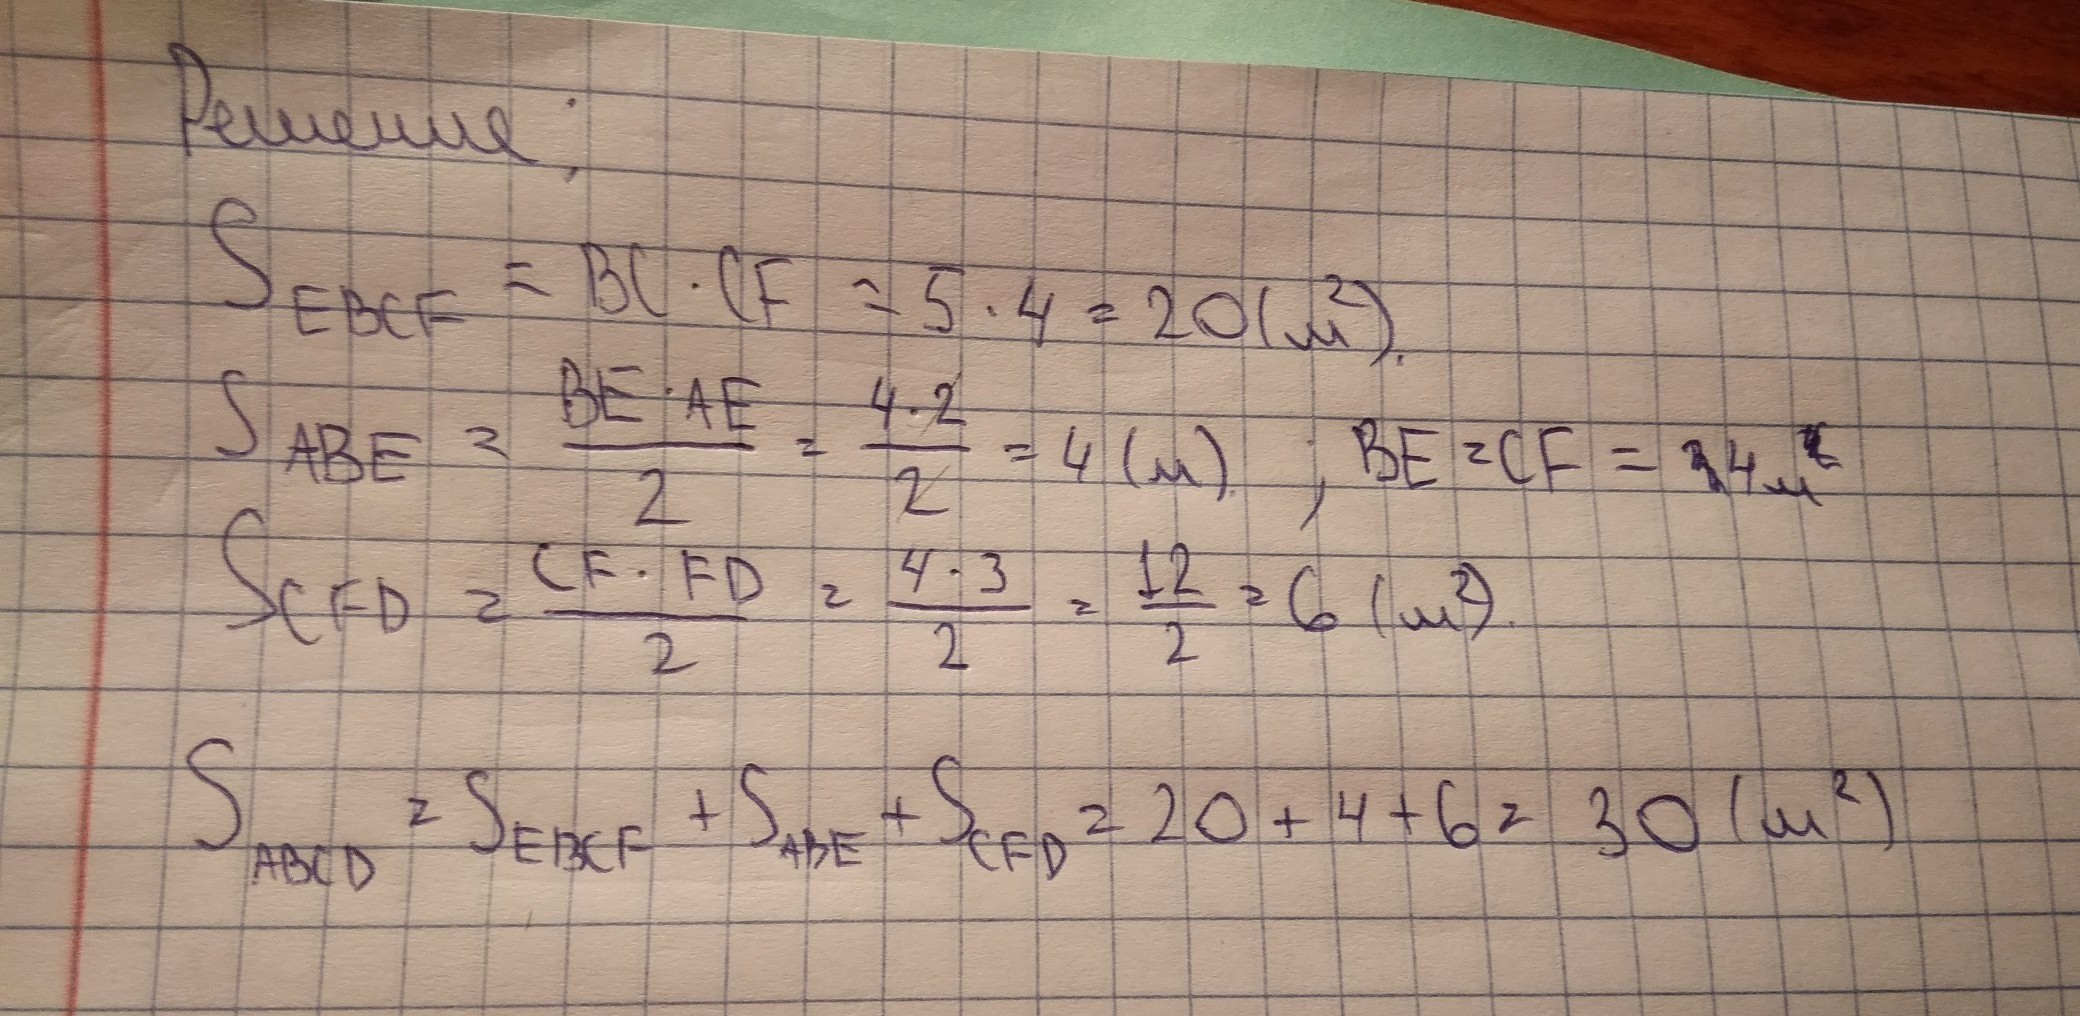 Решение:
S_EBCF = BC · CF = 5 · 4 = 20 (м²).
S_ABE = BE · AE / 2 = 4 · 2 / 2 = 4 (м). ; BE = CF = 4 м
S_CFD = CF · FD / 2 = 4 · 3 / 2 = 12 / 2 = 6 (м²).
S_ABCD = S_EBCF + S_ABE + S_CFD = 20 + 4 + 6 = 30 (м²)